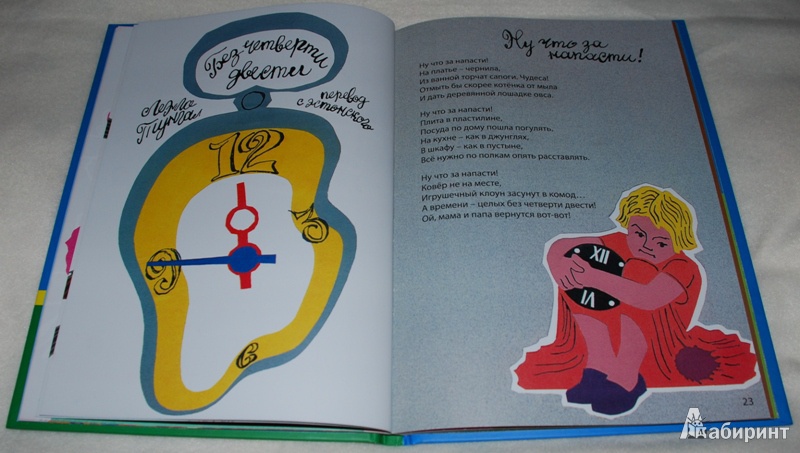 Без четверти
двести
Леэло
Тунгал
перевод
с эстонского
12
3
6
9
Ну что за
напасти!
Ну что за напасти!
На платье – чернила,
Из ванной торчат сапоги. Чудеса!
Отмыть бы скорее котёнка от мыла
И дать деревянной лошадке овса.
Ну что за напасти!
Плита в пластилине,
Посуда по дому пошла погулять,
На кухне – как в джунглях,
В шкафу – как в пустыне,
Всё нужно по полкам опять расставлять.
Ну что за напасти!
Ковёр не на месте,
Игрушечный клоун засунут в комод...
А времени – целых без четверти двести!
Ой, мама и папа вернутся вот-вот!
XII
VI
23
Лабиринт